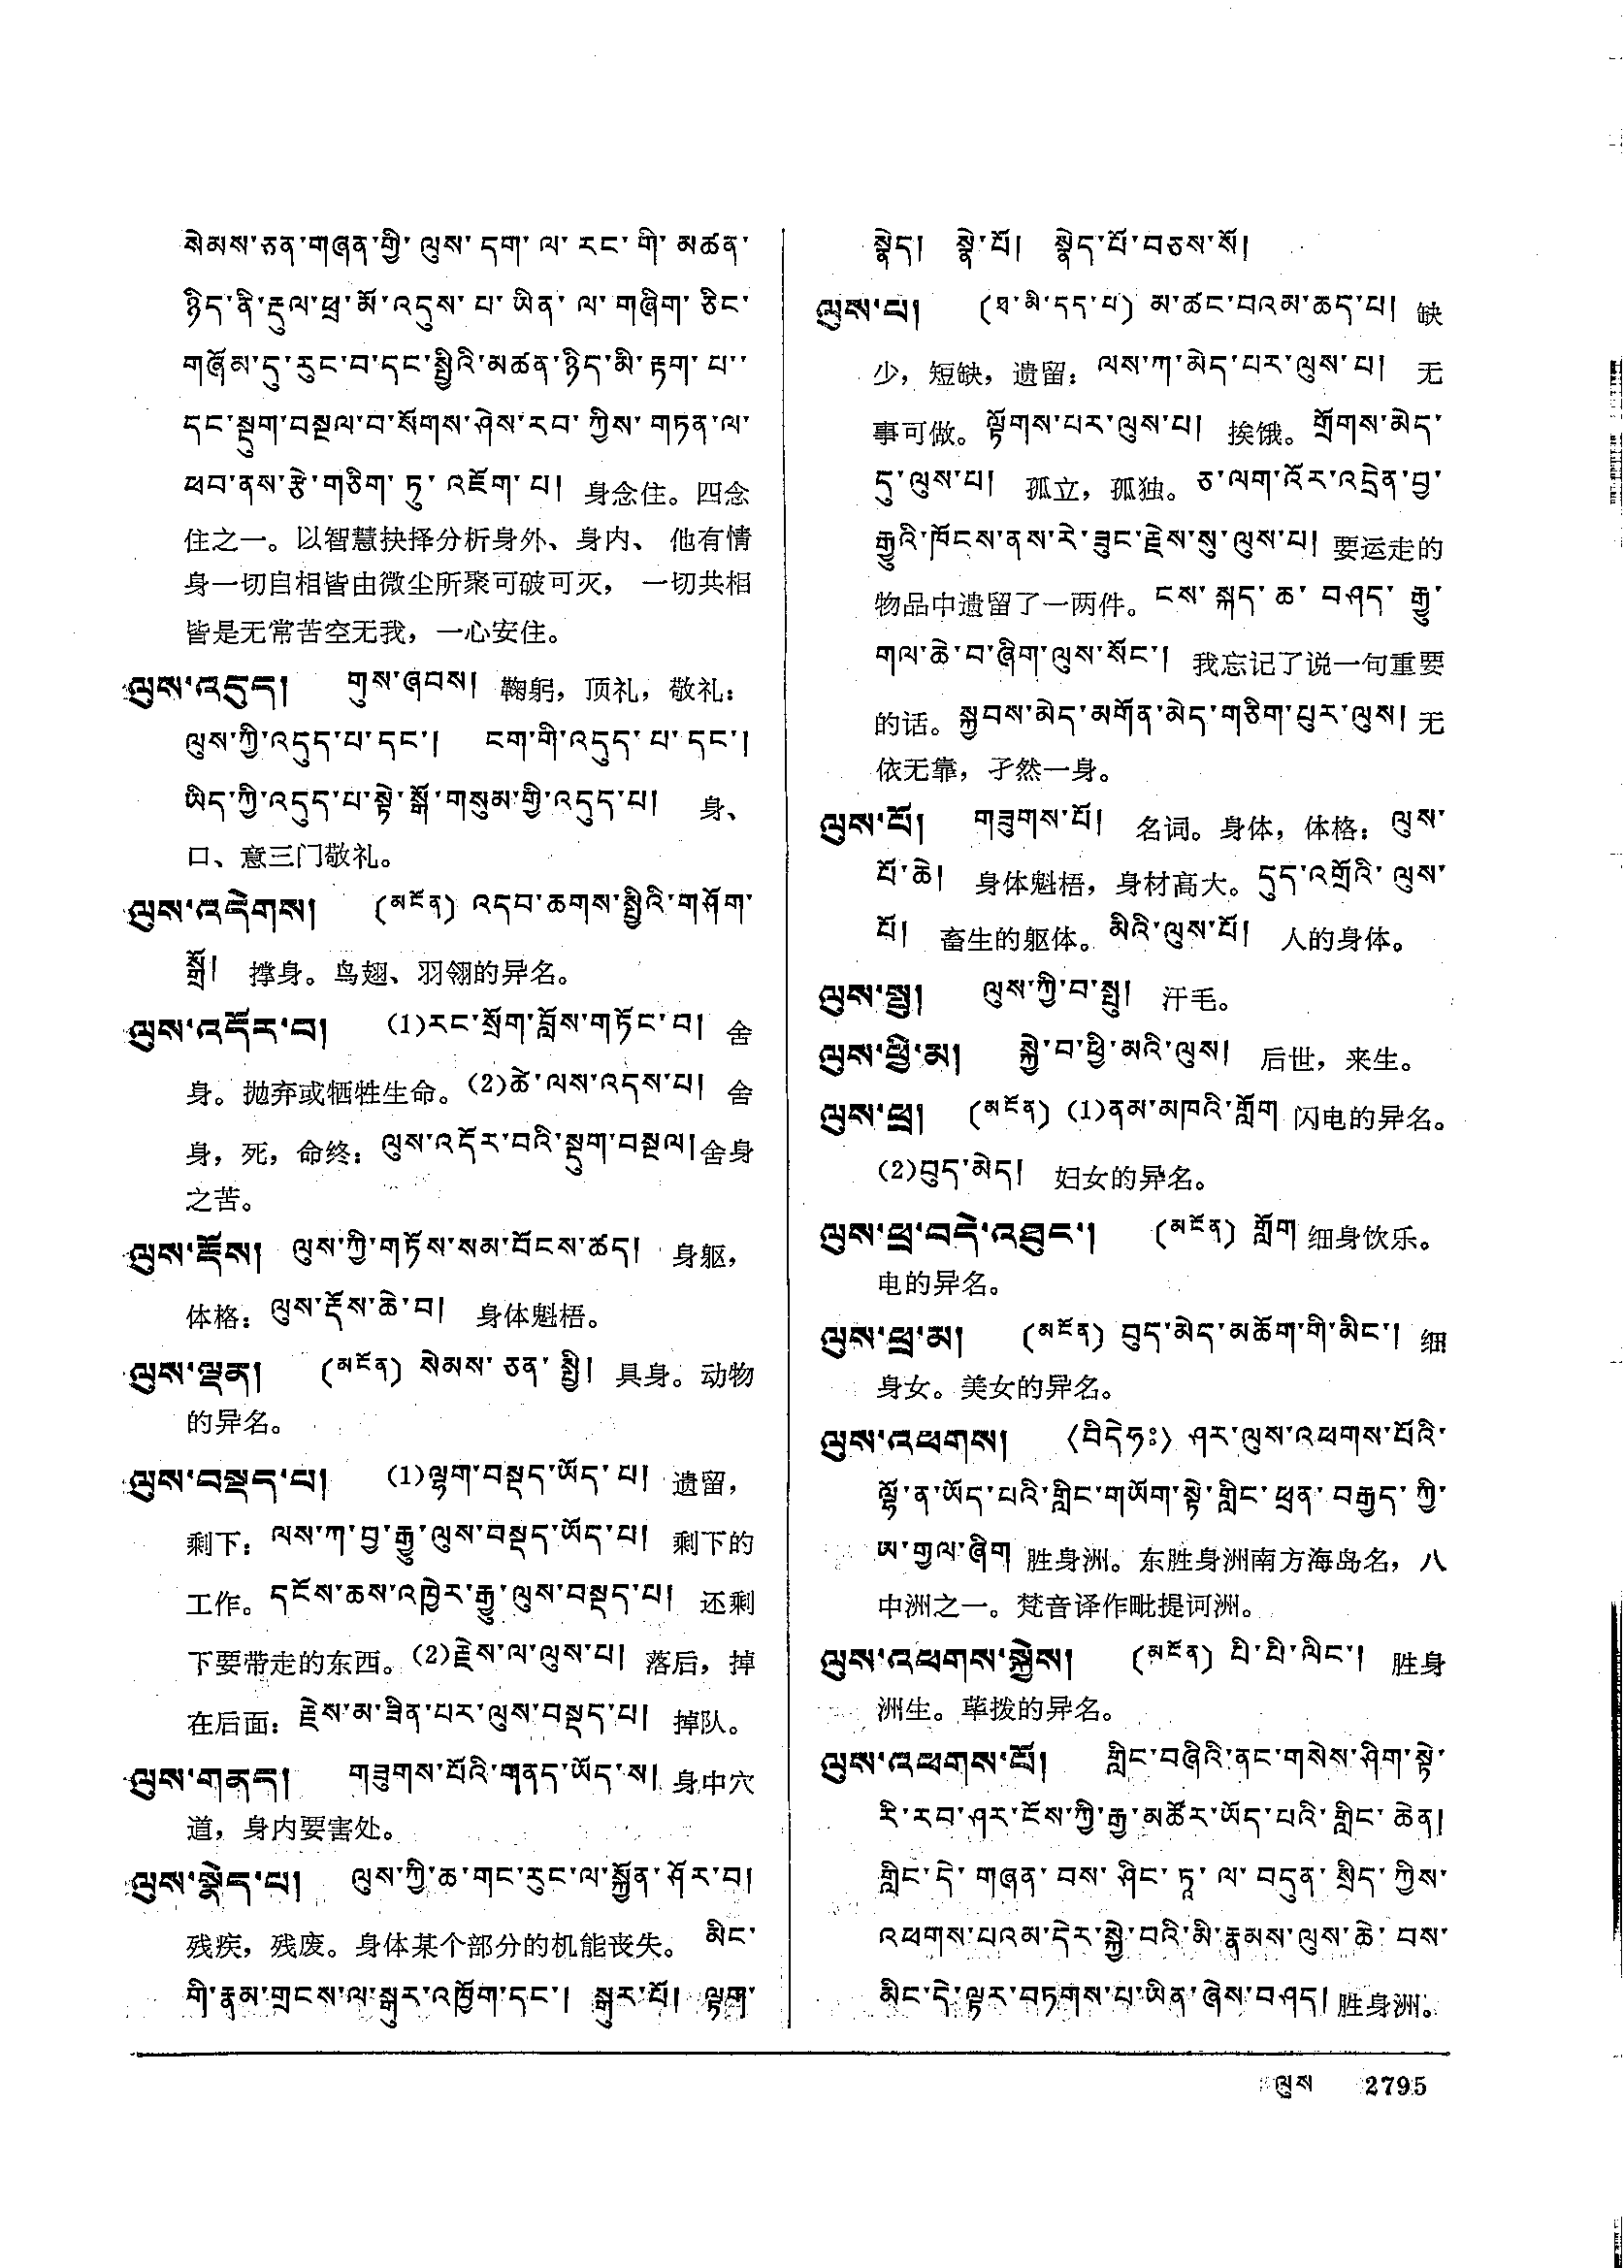 སེམས་ཅན་གཞན་གྱི་ ལུས་ དག་ ལ་ རང་ གི་ མཚན་
ཉིད་ནི་རྡུལ་ཕྲ་མོ་འདུས་ པ་ ཡིན་ ལ་ གཞིག་ ཅིང་
གཞོམ་དུ་རུང་བ་དང་སྤྱིའི་མཚན་ཉིད་མི་རྟག་ པ་
དང་སྡུག་བསྔལ་བ་སོགས་ཤེས་རབ་ ཀྱིས་ གཏན་ལ་
ཕབ་ནས་རྩེ་གཅིག་ ཏུ་ འཇོག་ པ། 身念住。四念
住之一。以智慧抉择分析身外、身内、他有情
身一切自相皆由微尘所聚可破可灭，一切共相
皆是无常苦空无我，一心安住。
ལུས་འདུད། གུས་ཞབས། 鞠躬，顶礼，敬礼：
ལུས་ཀྱི་འདུད་པ་དང་། ངག་གི་འདུད་ པ་ དང་།
ཡིད་ཀྱི་འདུད་པ་སྟེ་སྒོ་གསུམ་གྱི་འདུད་པ། 身、
口、意三门敬礼。
ལུས་འདེགས། (མངོན) འདབ་ཆགས་སྤྱིའི་གཤོག་
སྒྲོ། 撑身。鸟翅、羽翎的异名。
ལུས་འདོར་བ། (1)རང་སྲོག་བློས་གཏོང་བ། 舍
身。抛弃或牺牲生命。(2)ཚེ་ལས་འདས་པ། 舍
身，死，命终：ལུས་འདོར་བའི་སྡུག་བསྔལ།舍身
之苦。
ལུས་རྡོས། ལུས་ཀྱི་གཏོས་སམ་བོངས་ཚད། 身躯，
体格：ལུས་རྡོས་ཆེ་བ། 身体魁梧。
ལུས་ལྡན། (མངོན) སེམས་ ཅན་ སྤྱི། 具身。动物
的异名。
ལུས་བསྡད་པ། (1)ལྷག་བསྡད་ཡོད་ པ། 遗留，
剩下：ལས་ཀ་བྱ་རྒྱུ་ལུས་བསྡད་ཡོད་པ། 剩下的
工作。དངོས་ཆས་འཁྱེར་རྒྱུ་ལུས་བསྡད་པ། 还剩
下要带走的东西。(2)རྗེས་ལ་ལུས་པ། 落后，掉
在后面：རྗེས་མ་ཟིན་པར་ལུས་བསྡད་པ། 掉队。
ལུས་གནད། གཟུགས་པོའི་གནད་ཡོད་ས། 身中穴
道，身内要害处。
ལུས་སྣེད་པ། ལུས་ཀྱི་ཆ་གང་རུང་ལ་སྐྱོན་ཤོར་བ།
残疾，残废。身体某个部分的机能丧失。མིང་
གི་རྣམ་གྲངས་ལ་སྒུར་འཁྱོག་དང་། སྒུར་པོ། ལྟག་
སྣེད། སྣེ་པོ། སྣེད་པོ་བཅས་སོ།
ལུས་པ། (ཐ་མི་དད་པ) མ་ཚང་བའམ་ཆད་པ། 缺
少，短缺，遗留：ལས་ཀ་མེད་པར་ལུས་པ། 无
事可做。ལྟོགས་པར་ལུས་པ། 挨饿。གྲོགས་མེད་
དུ་ལུས་པ། 孤立，孤独。ཅ་ལག་འོར་འདྲེན་བྱ་
རྒྱུའི་ཁོངས་ནས་རེ་ཟུང་རྗེས་སུ་ལུས་པ། 要运走的
物品中遗留了一两件。ངས་ སྐད་ ཆ་ བཤད་ རྒྱུ་
གལ་ཆེ་བ་ཞིག་ལུས་སོང་། 我忘记了说一句重要
的话。སྐྱབས་མེད་མགོན་མེད་གཅིག་པུར་ལུས། 无
依无靠，孑然一身。
ལུས་པོ། གཟུགས་པོ། 名词。身体，体格：ལུས་
པོ་ཆེ། 身体魁梧，身材高大。དུད་འགྲོའི་ ལུས་
པོ། 畜生的躯体。མིའི་ལུས་པོ། 人的身体。
ལུས་སྤུ། ལུས་ཀྱི་བ་སྤུ། 汗毛。
ལུས་ཕྱི་མ། སྐྱེ་བ་ཕྱི་མའི་ལུས། 后世，来生。
ལུས་ཕྲ། (མངོན) (1)ནམ་མཁའི་གློག 闪电的异名。
(2)བུད་མེད། 妇女的异名。
ལུས་ཕྲ་བདེ་འཐུང་། (མངོན) གློག 细身饮乐。
电的异名。
ལུས་ཕྲ་མ། (མངོན) བུད་མེད་མཆོག་གི་མིང་། 细
身女。美女的异名。
ལུས་འཕགས། 〈བིདེཧཿ〉 ཤར་ལུས་འཕགས་པོའི་
ལྷོ་ན་ཡོད་པའི་གླིང་གཡོག་སྟེ་གླིང་ ཕྲན་ བརྒྱད་ ཀྱི་
ཨ་གྱལ་ཞིག 胜身洲。东胜身洲南方海岛名，八
中洲之一。梵音译作毗提诃洲。
ལུས་འཕགས་སྐྱེས། (མངོན) པི་པི་ལིང་། 胜身
洲生。荜拨的异名。
ལུས་འཕགས་པོ། གླིང་བཞིའི་ནང་གསེས་ཤིག་སྟེ་
རི་རབ་ཤར་ངོས་ཀྱི་རྒྱ་མཚོར་ཡོད་པའི་གླིང་ ཆེན།
གླིང་དེ་ གཞན་ བས་ ཤིང་ ཏཱ་ ལ་ བདུན་ སྲིད་ ཀྱིས་
འཕགས་པའམ་དེར་སྐྱེ་བའི་མི་རྣམས་ལུས་ཆེ་ བས་
མིང་དེ་ལྟར་བཏགས་པ་ཡིན་ཞེས་བཤད། 胜身洲。
ལུས 2795